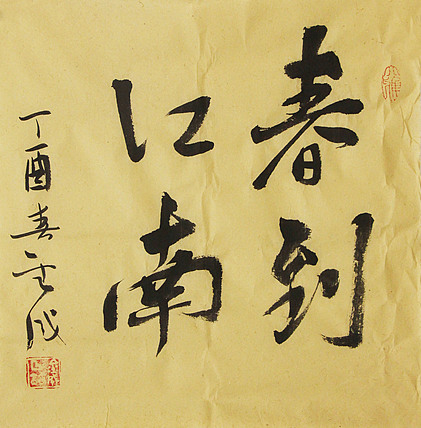 春到
江南
丁酉春